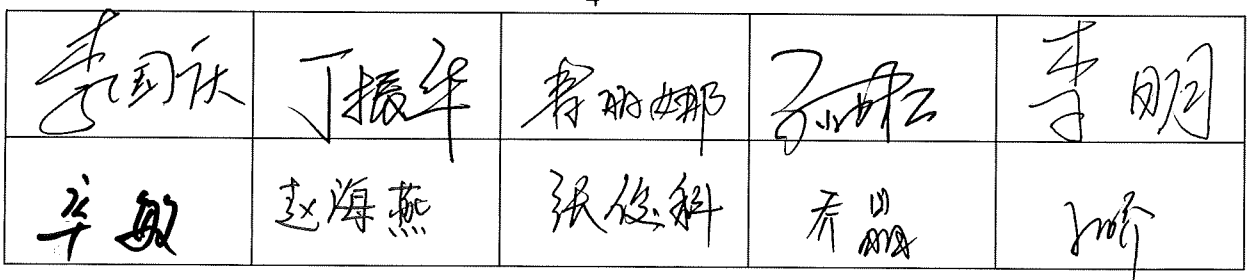 李国庆 丁振华 李丽娜 孙山林 李明
辛敏 赵海燕 张俊科 乔晶